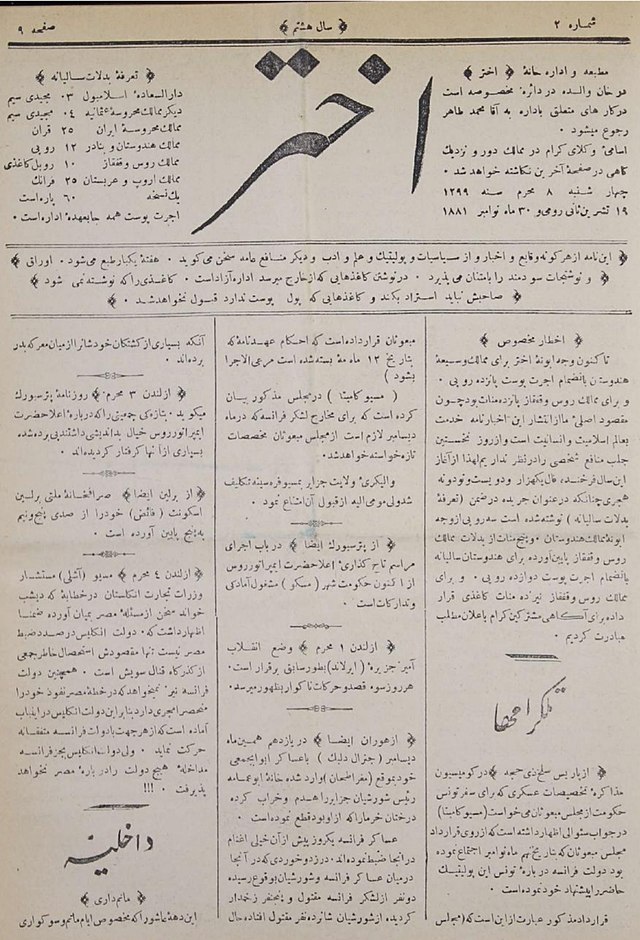 شماره ۲
﴿ سال هشتم ﴾
صفحه ۹
اختر
مطبعه و اداره خانهٔ ﴿ اختر ﴾
در خان والده در دائرهٔ مخصوصه است
در کار های متعلق باداره به آقا محمد طاهر
رجوع میشود .
اسامیٔ وکلای کرام در ممالک دور و نزدیک
کاهی در صفحهٔ آخرین نکاشته خواهد شد .
چهار شنبه ۸ محرم سنه ۱۲۹۹
۱۹ تشرین ثانی رومی و ۳۰ ماه نوامبر ۱۸۸۱
﴿ تعرفهٔ بدلات سالیانه ﴾
دارالسعادهٔ اسلامبول ۰۳ مجیدی سیم
دیکر ممالک محروسهٔ عثمانیه ۰۴ مجیدی سیم
ممالک محروسهٔ ایران ۲۵ قران
ممالک هندوستان و بنادر ۱۲ روپی
ممالک روس و قفقاز ۱۰ روبل کاغذی
ممالک اروپ و عربستان ۲۵ فرانک
یک نسخه ۶۰ پاره است
اجرت پوست همه جا بعهدهٔ اداره است .
﴿ این نامه از هر کونه وقایع و اخبار و از سیاسیات و پولیتیک و علم و ادب و دیکر منافع عامه سخن می کوید . هفتهٔ یکبار طبع می شود . اوراق ﴾
﴿ و نوشتجات سودمند را بامتنان می پذیرد . در نوشتن کاغذهایی که از خارج میرسد اداره آزاد است . کاغذی را که نوشته نمی شود ﴾
﴿ صاحبش نباید استرداد بکند و کاغذهایی که پول پوست ندارد قبول نخواهد شد . ﴾
﴿ اخطار مخصوص ﴾
تا کنون وجه ابونهٔ اختر برای ممالک وسیعهٔ
هندوستان بانضمام اجرت پوست پانزده روپی .
و برای ممالک روس و قفقاز پانزده منات بود چون
مقصود اصلیٔ ما از انتشار این اخبارنامه خدمت
بعالم اسلامیت و انسانیت است و از روز نخستین
جلب منافع شخصی را در نظر نداریم لهذا از آغاز
این سال فرخنده فال یکهزار و دویست و نود و نه
هجری چنانکه در عنوان جریده در ضمن (تعرفهٔ
بدلات سالیانه) نوشته شده است سه روپی از وجه
ابونهٔ ممالک هندوستان . و پنج منات از بدلات ممالک
روس و قفقاز پایین آورده برای هندوستان سالیانه
بانضمام اجرت پوست دوازده روپی . و برای
ممالک روس و قفقاز نیز ده منات کاغذی قرار
داده برای آکاهی مشترکین کرام باعلان مطلب
مبادرت کردیم .
تلکرافها
﴿ از پاریس سلخ ذی حجه ﴾ در کومیسیون
مذاکرهٔ تخصیصات عسکری که برای سفر تونس
حکومت از مجلس مبعوثان می خواست (مسیو کامبتا)
در جواب سئوالی اظهار داشته است که از روی قرارداد
مجلس مبعوثان که بتاریخ نهم ماه نوامبر اجتماع نموده
بود دولت فرانسه در بارهٔ تونس این پولیتیک
حاضر را پیشنهاد خود نموده است .
قرارداد مذکور عبارت از این است که (مجلس
مبعوثان قرارداده است که احکام عهدنامهٔ که
بتاریخ ۱۲ ماه مهٔ بسته شده است مرعی الاجرا
بشود )
( مسیو کامبتا ) در مجلس مذکور بیان
کرده است که برای مخارج لشکر فرانسه که در ماه
دیسامبر لازم است از مجلس مبعوثان مخصصات
تازه خواسته خواهد شد .
والیکریٔ ولایت جزایر بمسیو فرسینه تکلیف
شد ولی مومی الیه از قبول آن امتناع نمود .
﴿ از پترسبورک ایضا ﴾ در باب اجرای
مراسم تاج کذاریٔ اعلاحضرت ایمپراتور روس
از اکنون حکومت شهر (مسکو) مشغول آمادکی
و تدارکات است .
﴿ از لندن ۱ محرم ﴾ وضع انقلاب
آمیز جزیرهٔ ( ایرلاند ) بطور سابق برقرار است .
هر روز سوء قصد و حرکات ناکوار بظهور میرسد .
﴿ از هوران ایضا ﴾ در یازدهم همین ماه
دیسامبر ( جنرال دلبک ) با عساکر ابوابجمعی
خود بموقع (مغر الطحان) وارد شده خانهٔ ابو عمامه
رئیس شورشیان جزایر را هدم و خراب کرده
درختان خرما را که از او بود قطع نموده است .
عساکر فرانسه یکروز پیش از آن خیلی اغنام
در آنجا ضبط نموده اند . در زد و خوردی که در آنجا
درمیان عساکر فرانسه و شورشیان بوقوع رسیده
دو نفر از لشکر فرانسه مقتول و پنجنفر زخمدار
کردیده از شورشیان شانزده نفر مقتول افتاده حال
آنکه بسیاری از کشتکان خودشانرا از میان معرکه بدر
برده اند .
﴿ از لندن ۳ محرم ﴾ روزنامهٔ پترسبورک
میکوید . بتازکی جمعیتی را که در بارهٔ اعلاحضرت
ایمپراتور روس خیال بداندیشی داشتند پی برده شده
بسیاری از آنها کرفتار کردیده اند .
﴿ از برلین ایضا ﴾ صرافخانهٔ ملتی برلین
اسکونت ( فائض ) خود را از صدی پنج و نیم
به پنج پایین آورده است .
﴿ از لندن ٤ محرم ﴾ مسیو (آتشلی) مستشار
وزرات تجارت انکلستان در خطابهٔ که دیشب
خواند سخن از مسئلهٔ مصر بمیان آورده ضمنا
اظهار داشت که . دولت انکلیس در صدد ضبط
مصر نیست تنها مقصودش استحصال خاطر جمعی
از کذر کاه قنال سویش است . همچنین دولت
فرانسه نیز نمیخواهد که در خطهٔ مصر نفوذ خود را
منحصرا مجری دارد بنابراین دولت انکلیس در اینباب
آماده است که از هر جهت با دولت فرانسه متفقانه
حرکت نماید . ولی دولت انکلیس بجز فرانسه
مداخلهٔ هیچ دولت را در بارهٔ مصر نخواهد
پذیرفت . !!!
داخلیه
﴿ ماتمداری ﴾
این دههٔ عاشورا که مخصوص ایام ماتم و سوکواری